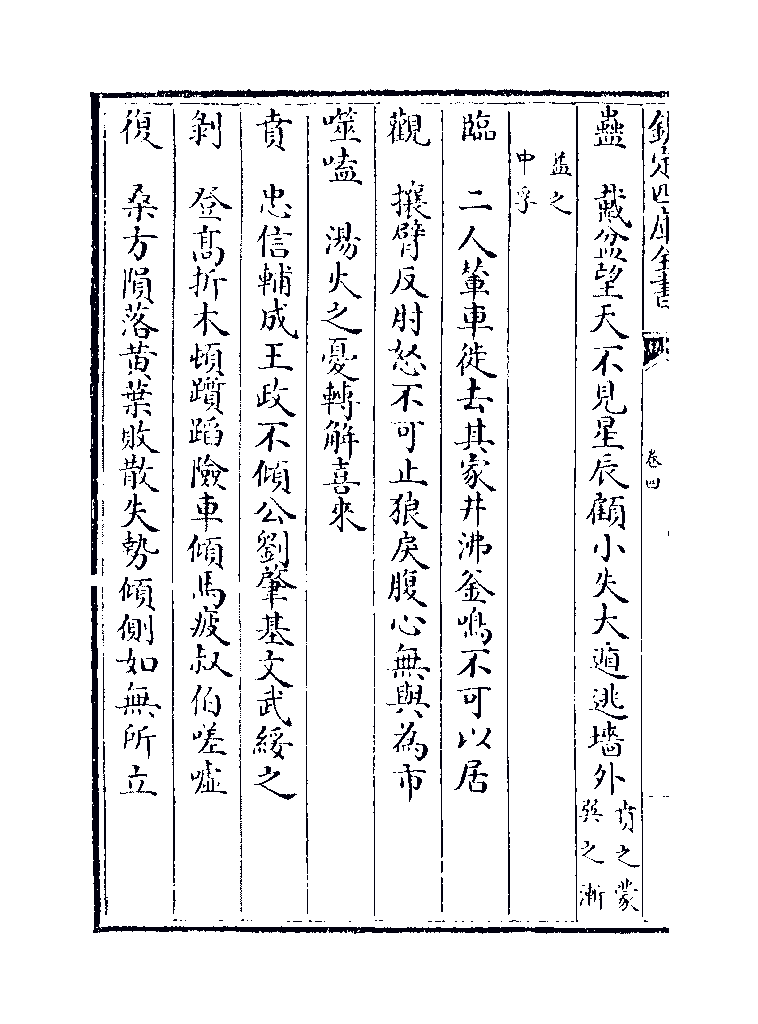 欽定四庫全書
卷四
蠱 戴盆望天不見星辰顧小失大遁逃墻外賁之蒙巽之漸
益之中孚
臨 二人輦車徙去其家井沸釜鳴不可以居
觀 攘臂反肘怒不可止狼戾腹心無與為市
噬嗑 湯火之憂轉解喜來
賁 忠信輔成王政不傾公劉肇基文武綏之
剝 登髙折木頓躓蹈險車傾馬疲叔伯嗟噓
復 桑方隕落黄葉敗散失勢傾側如無所立